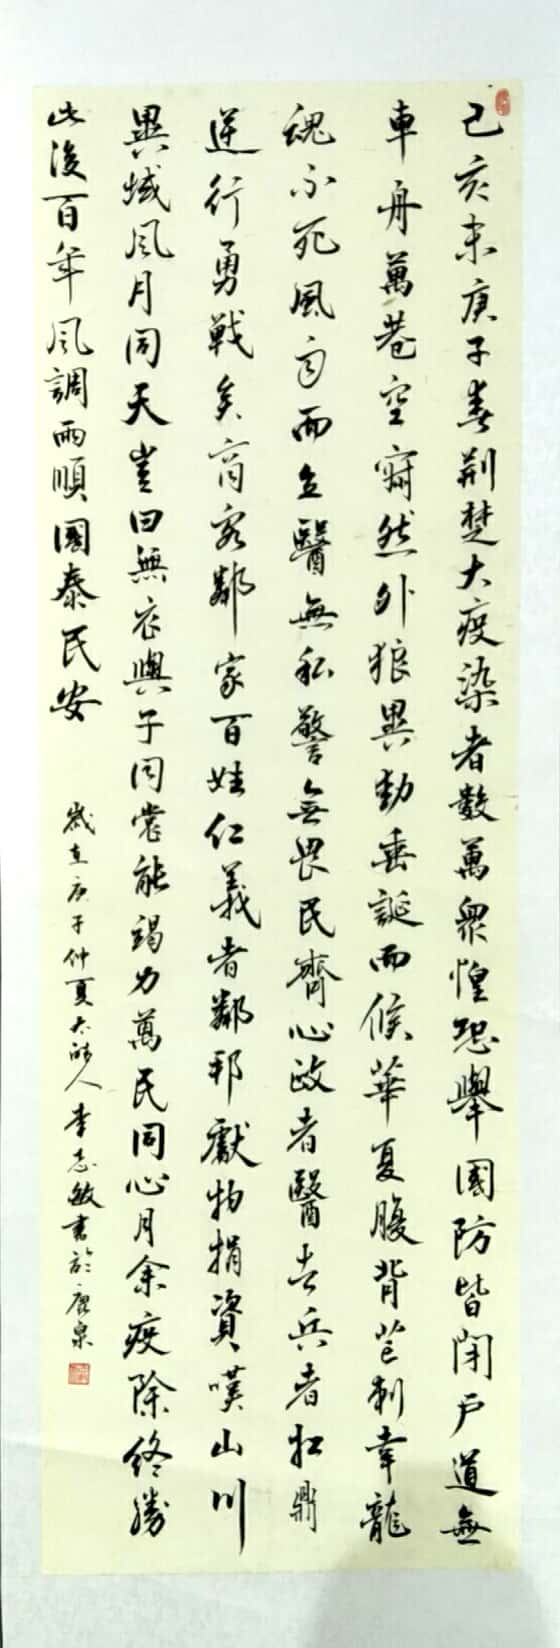 己亥末庚子春荆楚大疫染者數萬衆惶恐舉國防皆閉戶道無
車舟萬巷空寂然外狼異動垂誕而候華夏腹背芒刺幸龍
魂不死風雨而立醫無私警無畏民齊心政者醫者兵者扛鼎
逆行勇戰矣商客鄰家百姓仁義者鄰邦獻物捐資嘆山川
異域風月同天豈曰無衣與子同裳能竭力萬民同心月余疫除終勝
此後百年風調雨順國泰民安
歲在庚子仲夏 李志敏書於